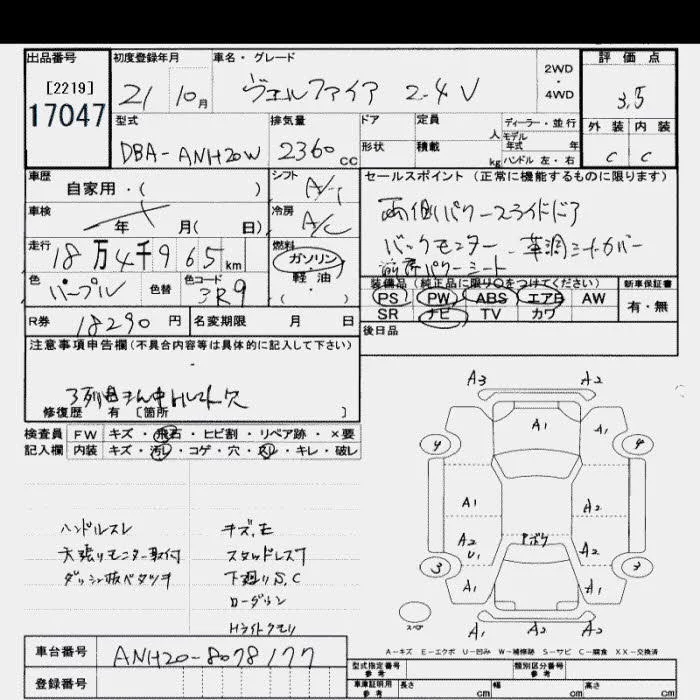 出品番号 初度登録年月 車名・グレード 2WD・4WD 評価点
[2219]
17047
21 10月 ヴェルファイア 2.4 V 3.5
型式 排気量 ドア 定員 人 ディーラー・並行 外装 内装
DBA-ANH20W 2360cc 形状 積載 kg モデル年式 年 ハンドル 左・右 C C
車歴 自家用・( ) シフト A/T セールスポイント (正常に機能するものに限ります)
車検 年 月(日) 冷房 A/C 両側パワースライドドア
走行 18万4千965km 燃料 ガソリン・軽油・( ) バックモニター 革調シートカバー
パワーシート
色 パープル 色替 色コード 3R9 装備品(純正品に限り○をつけてください) 新車保証書
PS PW ABS エアB AW 有・無
SR ナビ TV カワ
R券 18290円 名変期限 月 日 後日品
注意事項申告欄(不具合内容等は具体的に記入して下さい)
修復歴 有 [箇所 ]
検査員 FW キズ・飛石・ヒビ割・リペア跡・×要
記入欄 内装 キズ・汚レ・コゲ・穴・スレ・キレ・破レ
A3 A2
A1 A1
4 4
A1 A2
A2 U1 A2
3 3
A1 A1
スペア A1 A2
ハンドルスレ キズ、モ
天張りモニター取付 スタッドレス
下廻りS、C
ローダウン
Hライトクモリ
A-キズ E-エクボ U-凹み W-補修跡 S-サビ C-腐食 XX-交換済
車台番号 ANH20-8078177
登録番号
型式指定番号 参考 類別区分番号 参考
車庫証明用 参考 長さ cm 幅 cm 高さ cm